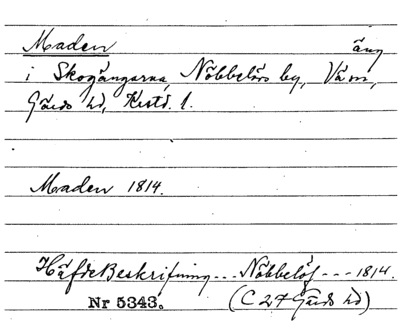 Maden äng
i Skogängarna, Nöbbelövs by, Vä sn,
Gärds hd, Krist. l.
Maden 1814.
HäfdeBeskrifning... Nöbbelöf --- 1814.
Nr 5343. (C 27 Gärds hd)